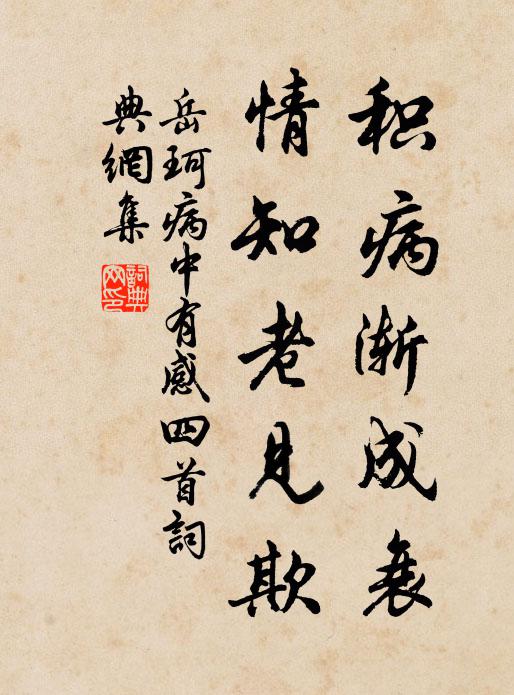 积病渐成衰
情知老見欺
岳珂病中有感四首詞
典網集
詞典网印